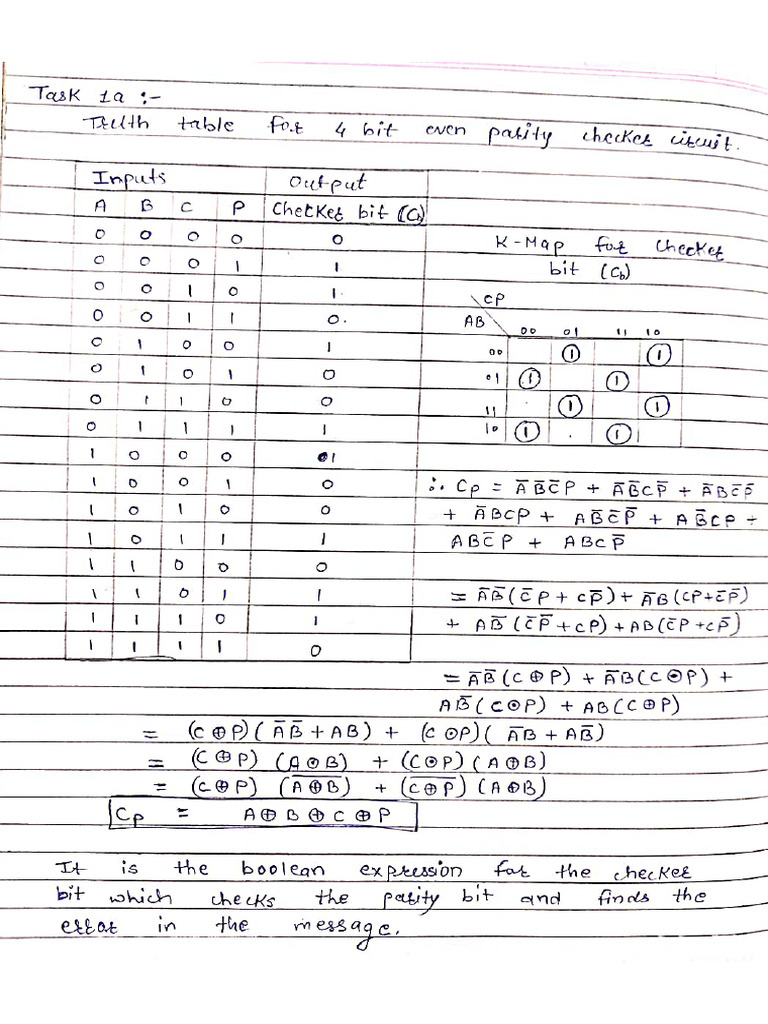 Task 1a :-
Truth table for 4 bit even parity checker circuit.
Inputs Output
A B C P Checker bit (Cb)
0 0 0 0 0
0 0 0 1 1
0 0 1 0 1.
0 0 1 1 0.
0 1 0 0 1
0 1 0 1 0
0 1 1 0 0
0 1 1 1 1
1 0 0 0 1
1 0 0 1 0
1 0 1 0 0
1 0 1 1 1
1 1 0 0 0
1 1 0 1 1
1 1 1 0 1
1 1 1 1 0
K-Map for checker
bit (Cb)
CP
AB 00 01 11 10
00 1 1
01 1 1
11 1 1
10 1 1
∴ Cp = A̅B̅C̅P + A̅B̅CP̅ + A̅BC̅P̅
+ A̅BCP + AB̅C̅P̅ + AB̅CP +
ABC̅P + ABCP̅
= A̅B̅(C̅P + CP̅) + A̅B(CP + C̅P̅)
+ AB̅(C̅P̅ + CP) + AB(C̅P + CP̅)
= A̅B̅(C⊕P) + A̅B(C⊙P) +
AB̅(C⊙P) + AB(C⊕P)
= (C⊕P)(A̅B̅ + AB) + (C⊙P)(A̅B + AB̅)
= (C⊕P) (A⊙B) + (C⊙P) (A⊕B)
= (C⊕P) (A̅⊕̅B̅) + (C̅⊕̅P̅) (A⊕B)
Cp = A⊕B⊕C⊕P
It is the boolean expression for the checker
bit which checks the parity bit and finds the
error in the message.